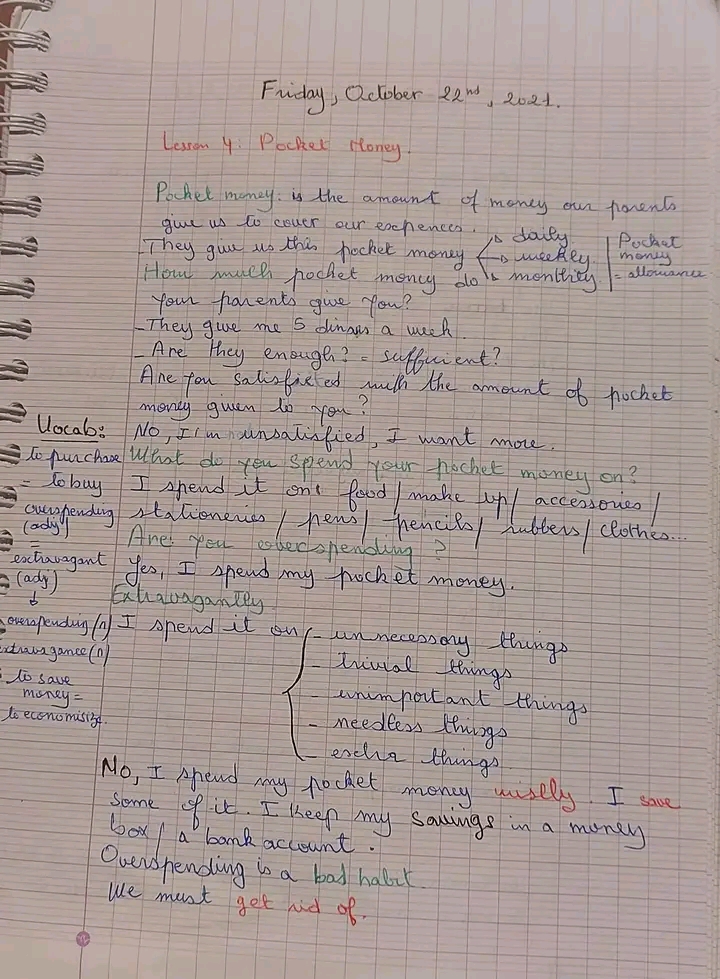 Friday, October 22nd, 2021.
Lesson 4: Pocket Money.
Pocket money: is the amount of money our parents
give us to cover our expences.
They give us this pocket money
daily
weekly
monthly
Pocket
money
= allowance
How much pocket money do
your parents give you?
- They give me 5 dinars a week.
- Are they enough? = sufficient?
Are you satisfied with the amount of pocket
money given to you?
No, I'm unsatisfied, I want more.
What do you spend your pocket money on?
I spend it on: food / make up / accessories /
stationeries / pens / pencils / rubbers / clothes...
Are you overspending?
Yes, I spend my pocket money.
Extravagantly
I spend it on
- unnecessory things
- trivial things
- unimportant things
- needless things
- extra things
No, I spend my pocket money wiselly. I save
some of it. I keep my savings in a money
box / a bank account.
Overspending is a bad habit.
We must get rid of.
Vocab:
to purchase
= to buy
overspending
(adj)
=
extravagant
(adj)
↓
overspending (n)
extravagance (n)
to save
money =
to economisize.